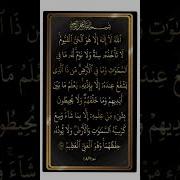 بِسْمِ ٱللَّهِ ٱلرَّحْمَٰنِ ٱلرَّحِيمِ
ٱللَّهُ لَآ إِلَٰهَ إِلَّا هُوَ ٱلْحَىُّ ٱلْقَيُّومُ
لَا تَأْخُذُهُۥ سِنَةٌ وَلَا نَوْمٌ لَّهُۥ مَا فِى
ٱلسَّمَٰوَٰتِ وَمَا فِى ٱلْأَرْضِ مَن ذَا ٱلَّذِى
يَشْفَعُ عِندَهُۥٓ إِلَّا بِإِذْنِهِۦ يَعْلَمُ مَا بَيْنَ
أَيْدِيهِمْ وَمَا خَلْفَهُمْ وَلَا يُحِيطُونَ
بِشَىْءٍ مِّنْ عِلْمِهِۦٓ إِلَّا بِمَا شَآءَ وَسِعَ
كُرْسِيُّهُ ٱلسَّمَٰوَٰتِ وَٱلْأَرْضَ وَلَا يَـُٔودُهُۥ
حِفْظُهُمَا وَهُوَ ٱلْعَلِىُّ ٱلْعَظِيمُ